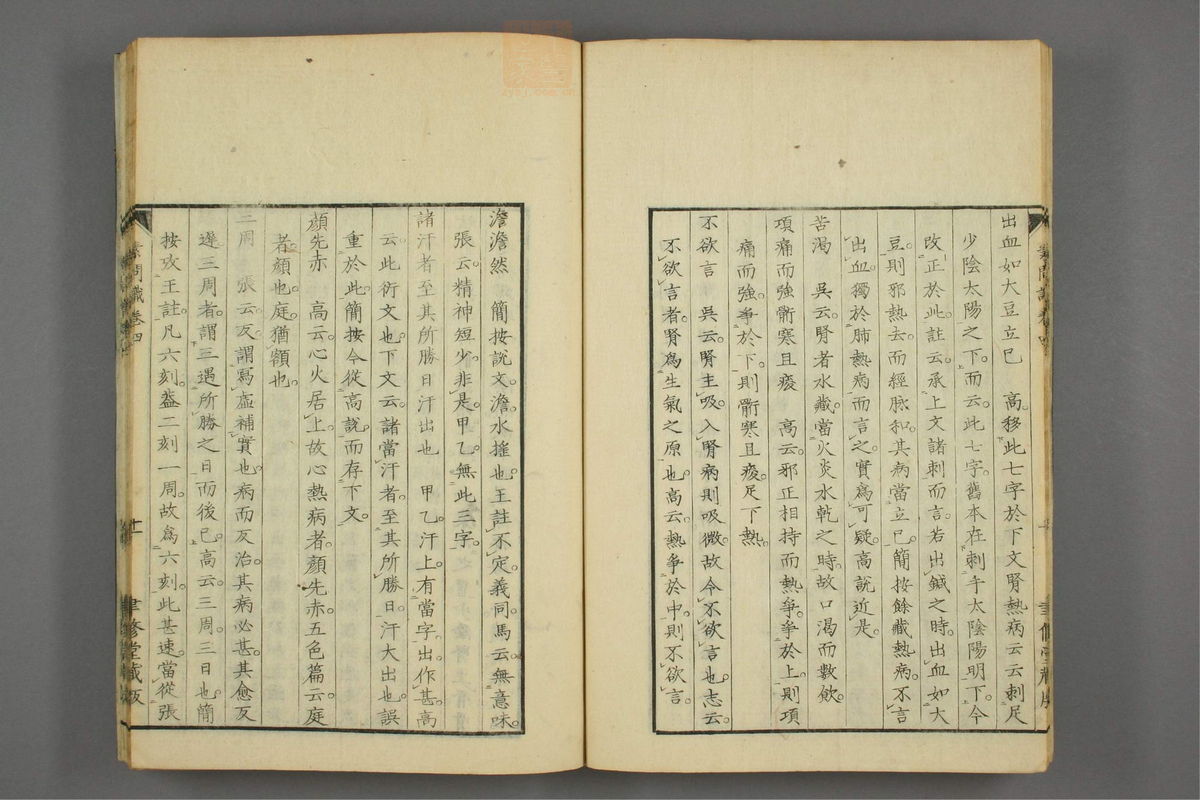 出血如大豆立已　高移此七字於下文腎熱病云云刺足
少陰太陽之下。而云此七字。舊本在刺手太陰陽明下。今
改正於此。註云。承上文諸刺而言。若出鍼之時。出血如大
豆。則邪熱去。而經脉和。其病當立已。簡按餘藏熱病。不言
出血。獨於肺熱病而言之。實爲可疑。高說近是。
苦渴　吳云。腎者水藏。當火炎水乾之時。故口渴而數飲。
項痛而強䯒寒且痠　高云。邪正相持而熱爭。爭於上。則項
痛而強。爭於下。則䯒寒且痠。足下熱。
不欲言　吳云。腎主吸。入腎病則吸微。故令不欲言也。志云。
不欲言者。腎爲生氣之原也。高云。熱爭於中。則不欲言。
澹澹然　簡按說文。澹。水搖也。王註。不定。義同。馬云。無意味。
張云。精神短少。非是。甲乙。無此三字。
諸汗者至其所勝日汗出也　甲乙。汗上。有當字。出。作甚。高
云。此衍文也。下文云。諸當汗者。至其所勝日。汗大出也。誤
重於此。簡按今從高說。而存下文。
顏先赤　高云。心火居上。故心熱病者。顏先赤。五色篇云。庭
者。顏也。庭猶額也。
三周　張云。反。謂寫虛補實也。病而反治。其病必甚。其愈反
遲。三周者。謂三遇所勝之日而後已。高云。三周。三日也。簡
按攷王註。凡六刻。盖二刻一周。故爲六刻。此甚速。當從張
素問識卷四
聿修堂藏版